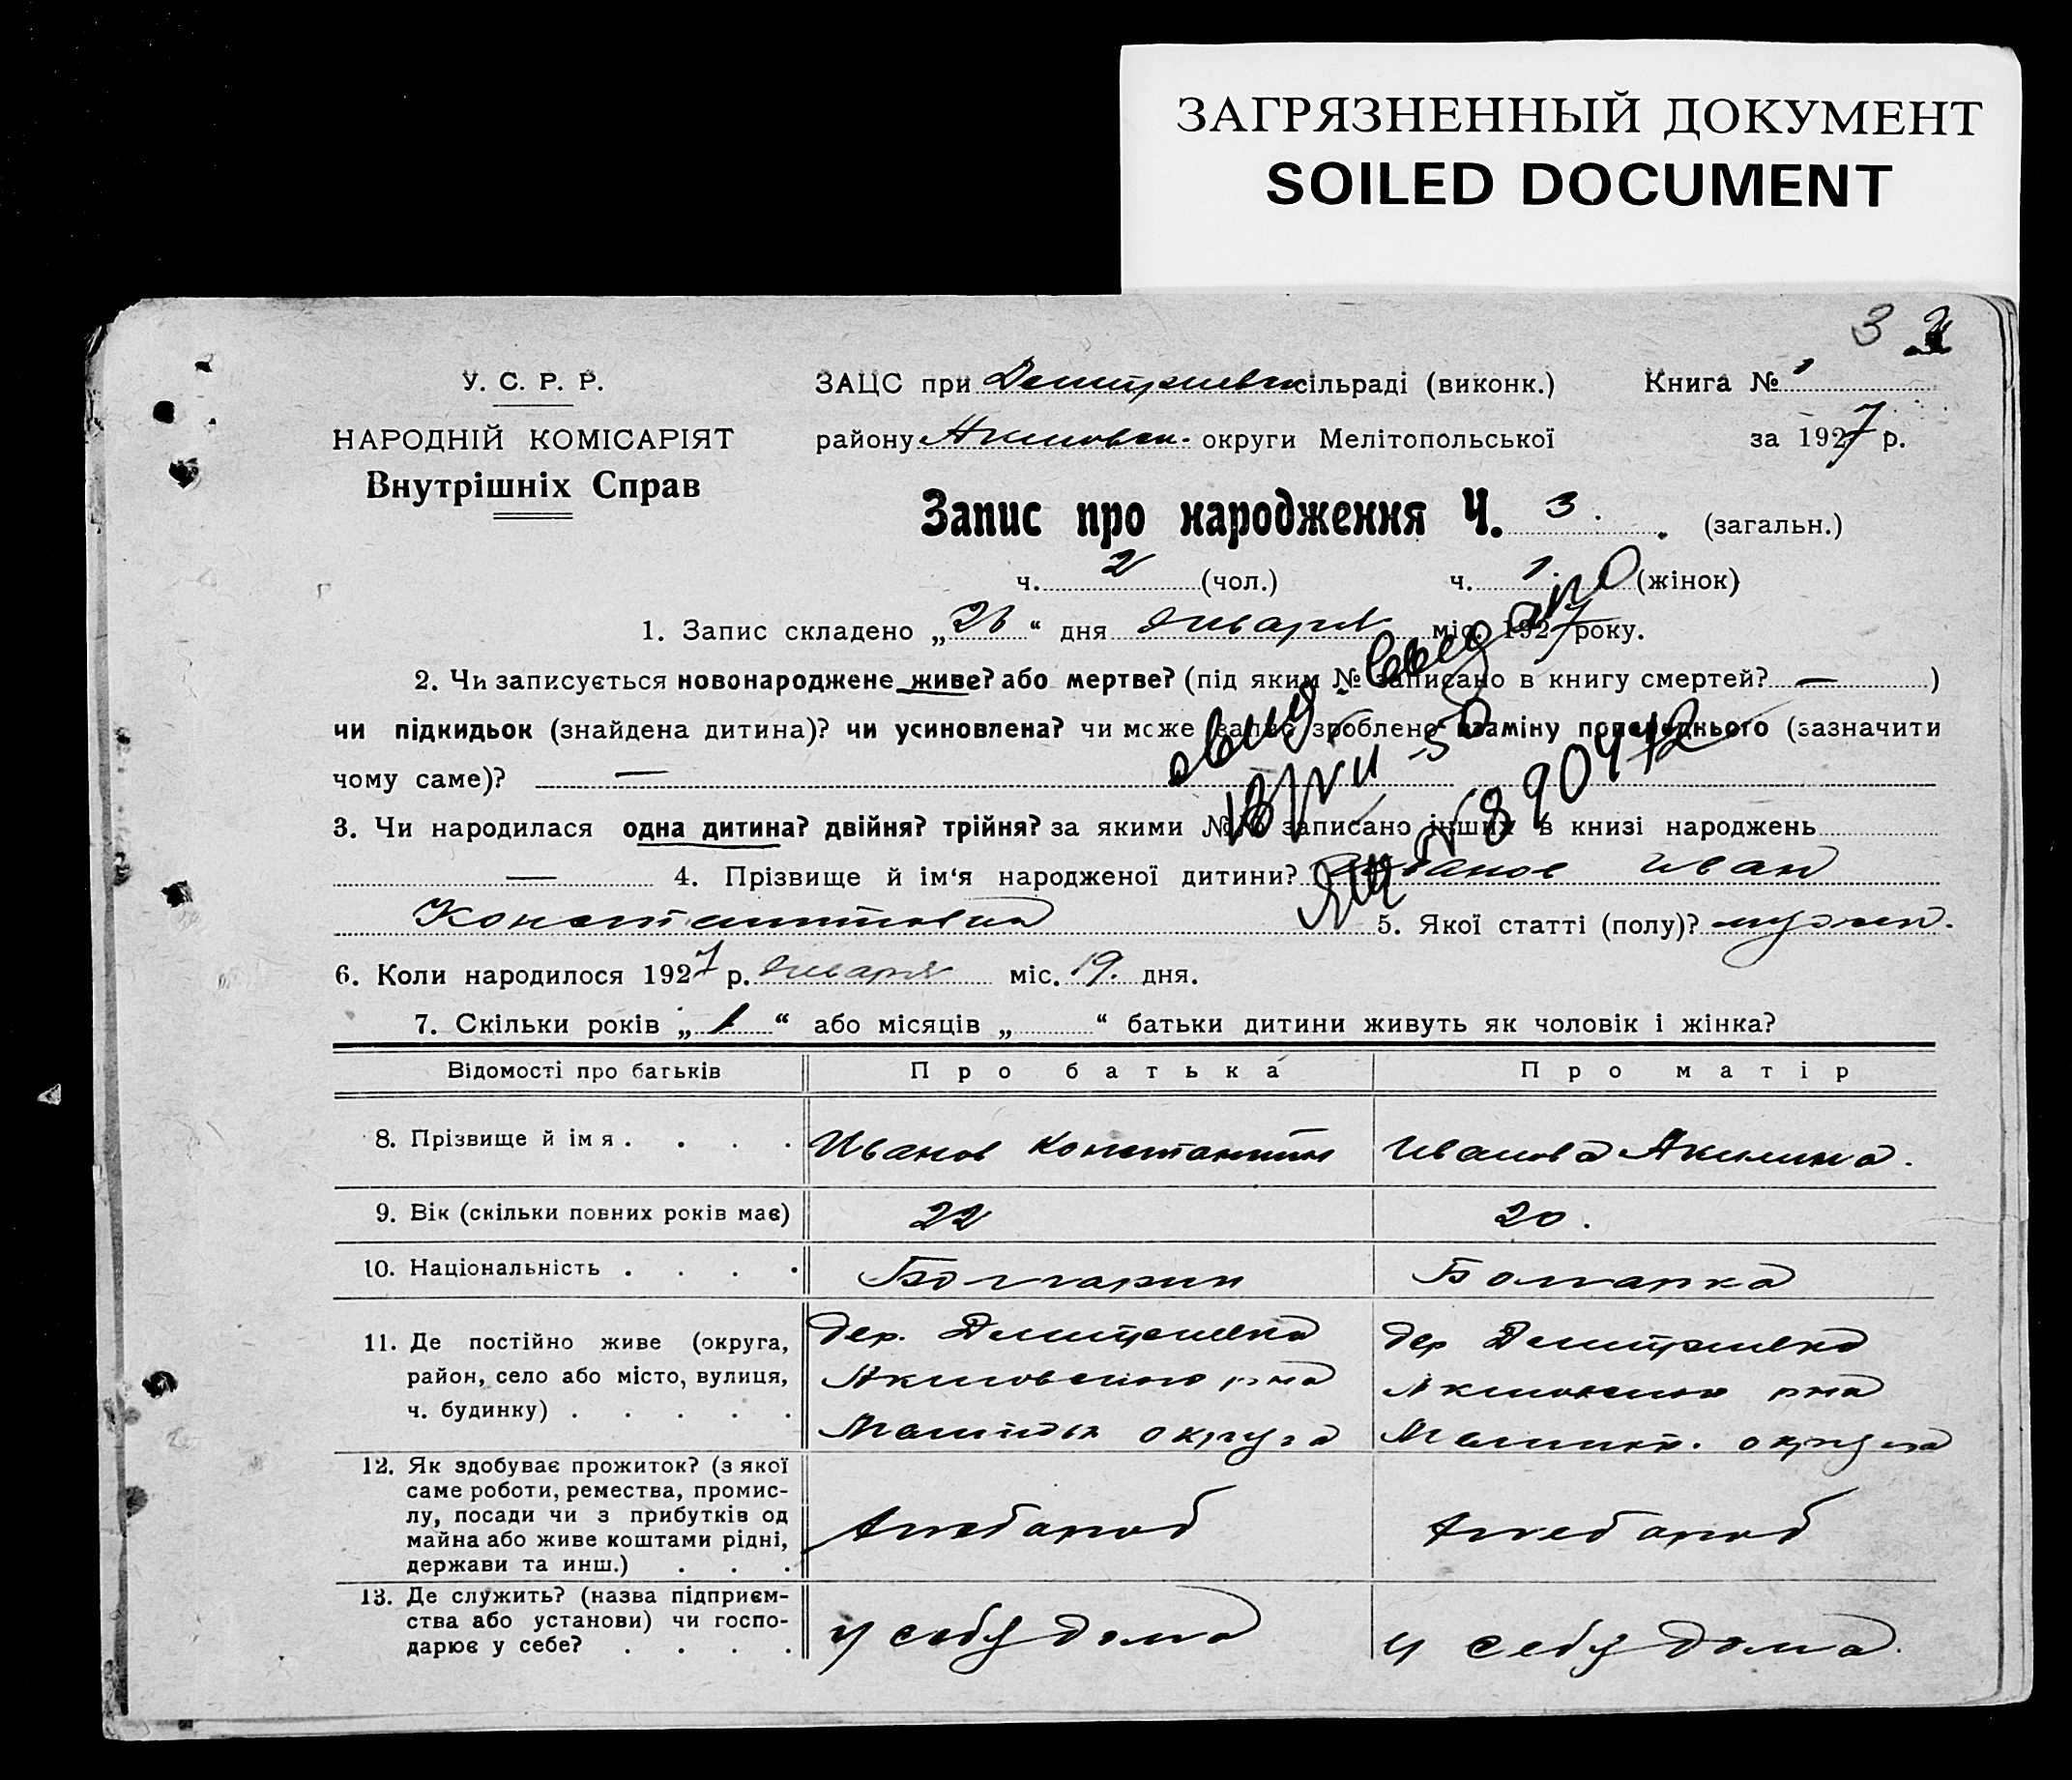 ЗАГРЯЗНЕННЫЙ ДОКУМЕНТ
SOILED DOCUMENT
3
У. С. Р. Р.
НАРОДНІЙ КОМІСАРІЯТ
Внутрішніх Справ
ЗАЦС при Дмитриевск сільраді (виконк.)
Книга № 1
району Акимовск. округи Мелітопольської
за 1927 р.
Запис про народження Ч. 3. (загальн.)
ч. 2 (чол.) ч. 1. (жінок)
1. Запис складено „26“ дня января міс. 1927 року.
2. Чи записується новонароджене живе? або мертве? (під яким № записано в книгу смертей? — )
чи підкидьок (знайдена дитина)? чи усиновлена? чи може запис зроблено взаміну попереднього (зазначити
чому саме)? —
3. Чи народилася одна дитина? двійня? трійня? за якими №№ записано інших в книзі народжень
— 4. Прізвище й ім‘я народженої дитини? Иванов Иван
Константинович 5. Якої статті (полу)? мужск.
6. Коли народилося 1927 р. января міс. 19. дня.
7. Скільки років „1“ або місяців „ “ батьки дитини живуть як чоловік і жінка?
Відомості про батьків Про батька Про матір
8. Прізвище й імя . . . . Иванов Константин Иванова Акилина.
9. Вік (скільки повних років має) 22 20.
10. Національність . . . . Болгарин Болгарка
11. Де постійно живе (округа, дер. Дмитриевка дер Дмитриевка
район, село або місто, вулиця, Акимовского р-на Акимовского р-на
ч. будинку) . . . . . округа округа
12. Як здобуває прожиток? (з якої
саме роботи, ремества, промис-
лу, посади чи з прибутків од
майна або живе коштами рідні, хлебороб хлебороб
держави та инш.) . . .
13. Де служить? (назва підприєм-
ства або установи) чи госпо- у себя дома у себя дома.
дарює у себе? . . . .